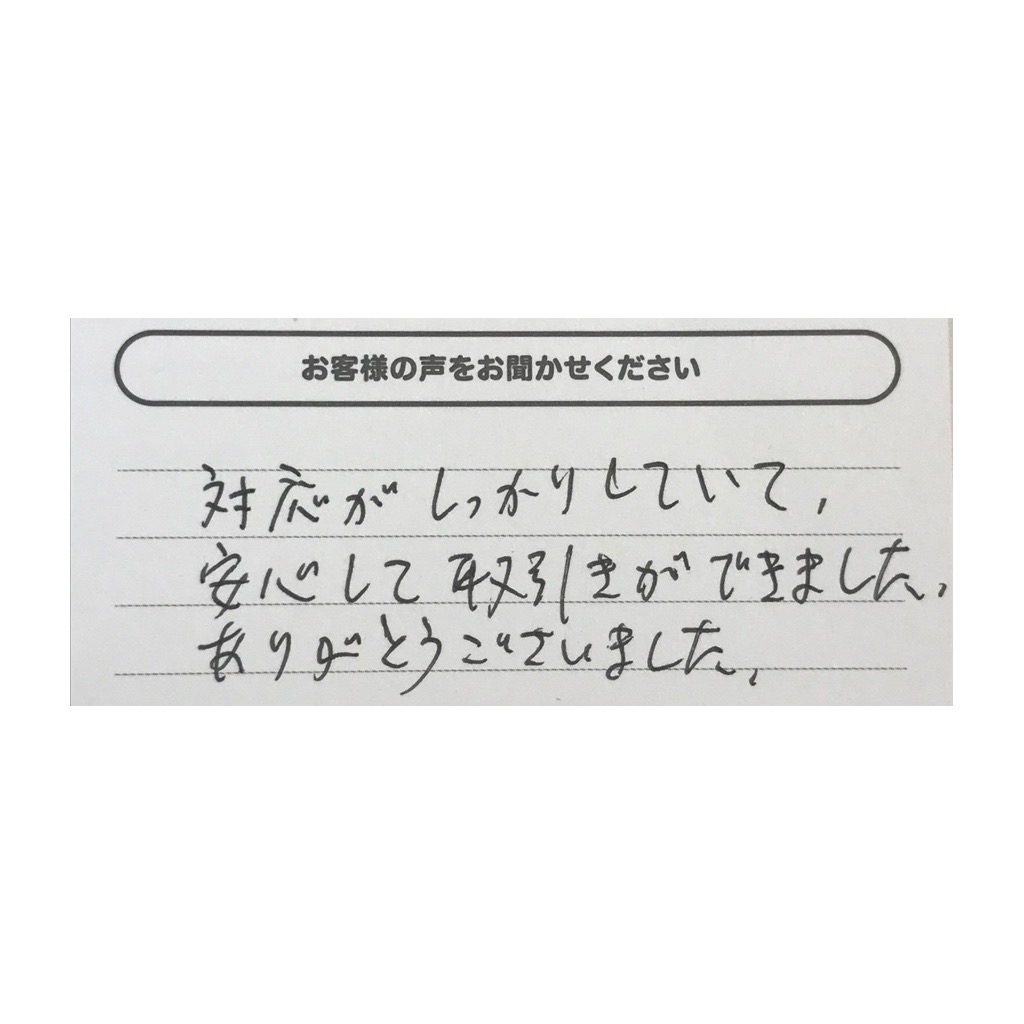 お客様の声をお聞かせください
対応がしっかりしていて,
安心して取引きができました,
ありがとうございました,